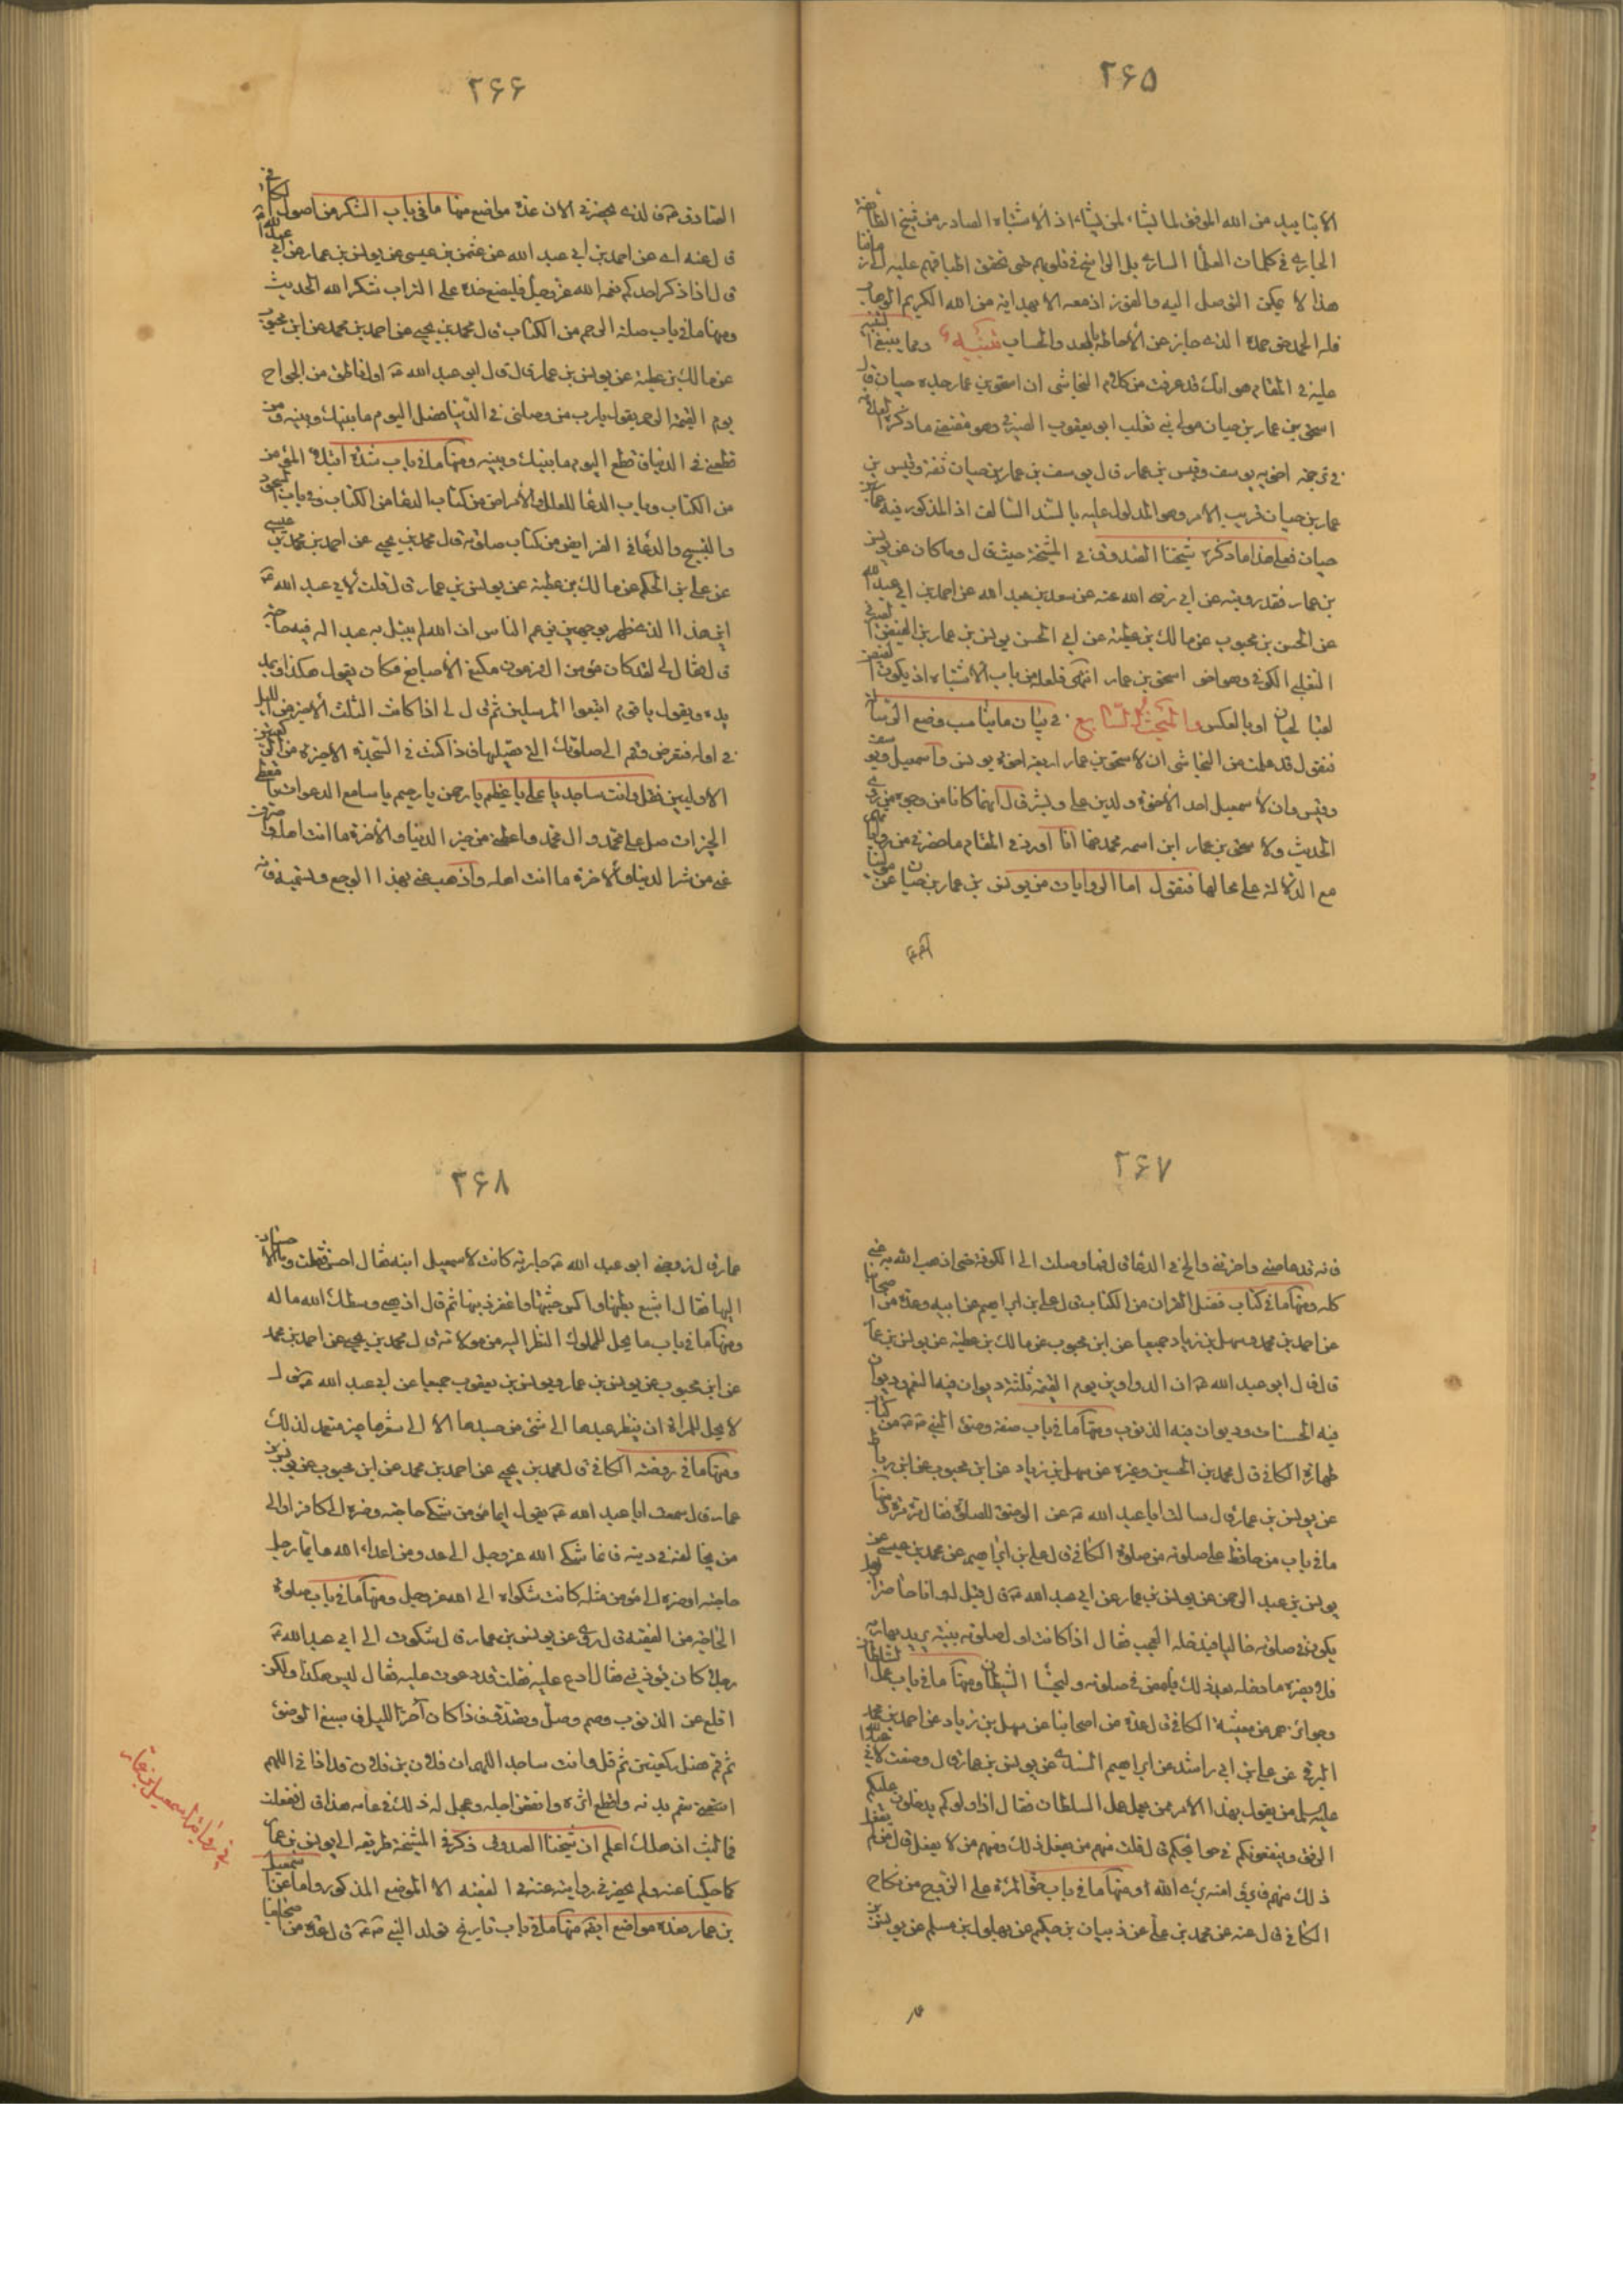 ۲۶۵
الا بتاييد من الله الموفق لما يشاء لمن يشاء اذ الاشتباه الصادر من شيخ الطائفة
الجاري في كلمات العظماء الساري بل الراسخ في قلوبهم حتى تحقق اطباقهم عليه الى زماننا
هذا لا يمكن التوصل اليه والفوز اذ معه الا بهداية من الله الكريم الوهاب
فله الحمد حق حمده الذي جاز عن الاحاطة بالعد والحساب تنبيه ومما ينبغي التنبيه
عليه في المقام هو انك قد عرفت من كلام النجاشي ان اسحق بن عمار جده حيان قال
اسحق بن عمار بن حيان مولى بني تغلب ابو يعقوب الصيرفي وهو مقتضى ما ذكره
في ترجمة اخويه يوسف وقيس بن عمار قال يوسف بن عمار بن حيان ثقة وقيس بن
عمار بن حيان قريب الامر وهو المدلول عليه بالسند السالف اذ المذكور فيه عمار بن
حيان فعلى هذا ما ذكره شيخنا الصدوق في المشيخة حيث قال وما كان عن يونس
بن عمار فقد رويته عن ابي رضي الله عنه عن سعد بن عبد الله عن احمد بن ابي عبد الله
عن الحسن بن محبوب عن مالك بن عطية عن ابي الحسن يونس بن عمار بن الفيض الصيرفي
التغلبي الكوفي وهو اخو اسحق بن عمار انتهى فلعله من باب الاشتباه اذ يكون الفيض
لقبا لحيان او بالعكس والمبحث السابع في بيان ما يناسب وضع الرسالة
فنقول قد علمت من النجاشي ان لاسحق بن عمار اربعة اخوة يونس واسمعيل ويوسف
وقيس وان لاسمعيل احد الاخوة ولدين علي وبشر قال انهما كانا من وجوه من روى
الحديث ولاسحق بن عمار ابن اسمه محمد فها انا اورد في المقام ما حضرني من رواياتهم
مع الدلالة على محالها فنقول اما الروايات من يونس بن عمار بن حيان عن مولينا
۲۶۶
الصادق فالذي يحضرني الان عدة مواضع منها ما في باب الشكر من اصول الكافي
قال عنه اي عن احمد بن ابي عبد الله عن عثمن بن عيسى عن يونس بن عمار عن ابي عبد الله
قال اذا ذكر احدكم نعمة الله عز وجل فليضع خده على التراب شكرا لله الحديث
ومنها ما في باب صلة الرحم من الكتاب قال محمد بن يحيى عن احمد بن محمد عن ابن محبوب
عن مالك بن عطية عن يونس بن عمار قال قال ابو عبد الله اول ناطق من الجوارح
يوم القيمة الرحم يقول يا رب من وصلني في الدنيا فصل اليوم ما بينك وبينه ومن
قطعني في الدنيا فاقطع اليوم ما بينك وبينه ومنها ما في باب شدة ابتلاء المؤمن
من الكتاب وباب الدعا للعلل والامراض من كتاب الدعا من الكتاب وفي باب السجود
والتسبيح والدعاء في الفرايض من كتاب صلوته قال محمد بن يحيى عن احمد بن محمد بن عيسى
عن علي بن الحكم عن مالك بن عطية عن يونس بن عمار قال قلت لابي عبد الله
ان هذا الذي ظهر بوجهي يزعم الناس ان الله لم يبتل به عبدا له فيه حاجة
قال فقال لي لقد كان مؤمن ال فرعون مكنع الاصابع فكان يقول هكذا ويمد
يده ويقول يا قوم اتبعوا المرسلين ثم قال لي اذا كانت الثلث الاخير من الليل
في اوله فتوضا وقم الى صلوتك التي تصليها فاذا كنت في السجدة الاخيرة من الركعتين
الاوليين فقل وانت ساجد يا علي يا عظيم يا رحمن يا رحيم يا سامع الدعوات يا معطي
الخيرات صل على محمد وال محمد واعطني من خير الدنيا والاخرة ما انت اهله واصرف
عني من شر الدنيا والاخرة ما انت اهله واذهب عني بهذا الوجع وتسميه فانه
۲۶۷
فانه قد غاظني واحزنني والح في الدعا قال فما وصلت الى الكوفة حتى اذهب الله به عني
كله ومنها ما في كتاب فضل القران من الكتاب قال علي بن ابراهيم عن ابيه وعدة من اصحابنا
عن احمد بن محمد وسهل بن زياد جميعا عن ابن محبوب عن مالك بن عطية عن يونس بن عمار
قال قال ابو عبد الله ان الدواوين يوم القيمة ثلثة ديوان فيه النعم وديوان
فيه الحسنات وديوان فيه الذنوب ومنها ما في باب صفة وضوء النبي من كتاب
طهارة الكافي قال محمد بن الحسين وغيره عن سهل بن زياد عن ابن محبوب عن ابن رباط
عن يونس بن عمار قال سالت ابا عبد الله عن الوضوء للصلوة فقال مرة مرة ومنها
ما في باب من حافظ على صلوته من صلوة الكافي قال علي بن ابراهيم عن محمد بن عيسى عن
يونس بن عبد الرحمن عن يونس بن عمار عن ابي عبد الله قال قيل له وانا حاضر الرجل
يكون في صلوته خاليا فيدخله العجب فقال اذا كانت اول صلوته بنية يريد بها ربه
فلا يضره ما دخله بعد ذلك فليمض في صلوته وليخسا الشيطان ومنها ما في باب عمل السلطان
وجوائزهم من معيشة الكافي قال عدة من اصحابنا عن سهل بن زياد عن احمد بن محمد
البرقي عن علي بن ابي راشد عن ابراهيم السندي عن يونس بن عمار قال وصفت لابي عبد الله
عليه السلام من يقول بهذا الامر ممن يعمل عمل السلطان فقال اذا ولوكم يدخلون عليكم
الرفق وينفعونكم في حوائجكم قال قلت منهم من يفعل ذلك ومنهم من لا يفعل قال من لم يفعل
ذلك منهم فابرؤا منه برئ الله منه ومنها ما في باب حق المراة على الزوج من نكاح
الكافي قال عنه عن محمد بن علي عن ذبيان بن حكيم عن بهلول بن مسلم عن يونس بن
عمار
۲۶۸
عمار قال زوجني ابو عبد الله جارية كانت لاسمعيل ابنه فقال احسن اليها فقلت وما الاحسان
اليها فقال اشبع بطنها واكس جثتها واغفر ذنبها ثم قال اذهبي وسطك الله ماله
ومنها ما في باب ما يحل للمملوك النظر اليه من مولاته قال محمد بن يحيى عن احمد بن محمد
عن ابن محبوب عن يونس بن عمار ويونس بن يعقوب جميعا عن ابي عبد الله قال
لا يحل للمراة ان ينظر عبدها الى شئ من جسدها الا الى شعرها غير متعمد لذلك
ومنها ما في روضة الكافي قال محمد بن يحيى عن احمد بن محمد عن ابن محبوب عن يونس بن
عمار قال سمعت ابا عبد الله يقول ايما مؤمن شكى حاجته وضره الى كافر او الى
من يخالفه في دينه فانما شكى الله عز وجل الى عدو من اعداء الله وايما رجل شكى
حاجته او ضره الى مؤمن مثله كانت شكواه الى الله عز وجل ومنها ما في باب صلوة
الحاجة من الفقيه قال روى عن يونس بن عمار قال شكوت الى ابي عبد الله
رجلا كان يؤذيني فقال ادع عليه فقلت قد دعوت عليه فقال ليس هكذا ولكن
اقلع عن الذنوب وصم وصل وتصدق فاذا كان آخر الليل فاسبغ الوضوء
ثم قم فصل ركعتين ثم قل وانت ساجد اللهم ان فلان بن فلان قد اذاني اللهم
اسقم بدنه واقطع اثره وانقص اجله وعجل له ذلك في عامه هذا قال ففعلت
فما لبث ان هلك اعلم ان شيخنا الصدوق ذكر في المشيخة طريقه الى يونس بن عمار
كما حكينا عنه ولم يحضرني روايته عنه في الفقيه الا الموضع المذكور واما عن اسمعيل
بن عمار ففي عدة مواضع ايضا منها ما في باب تاريخ تولد النبي قال عدة من اصحابنا
في روايات اسمعيل بن عمار